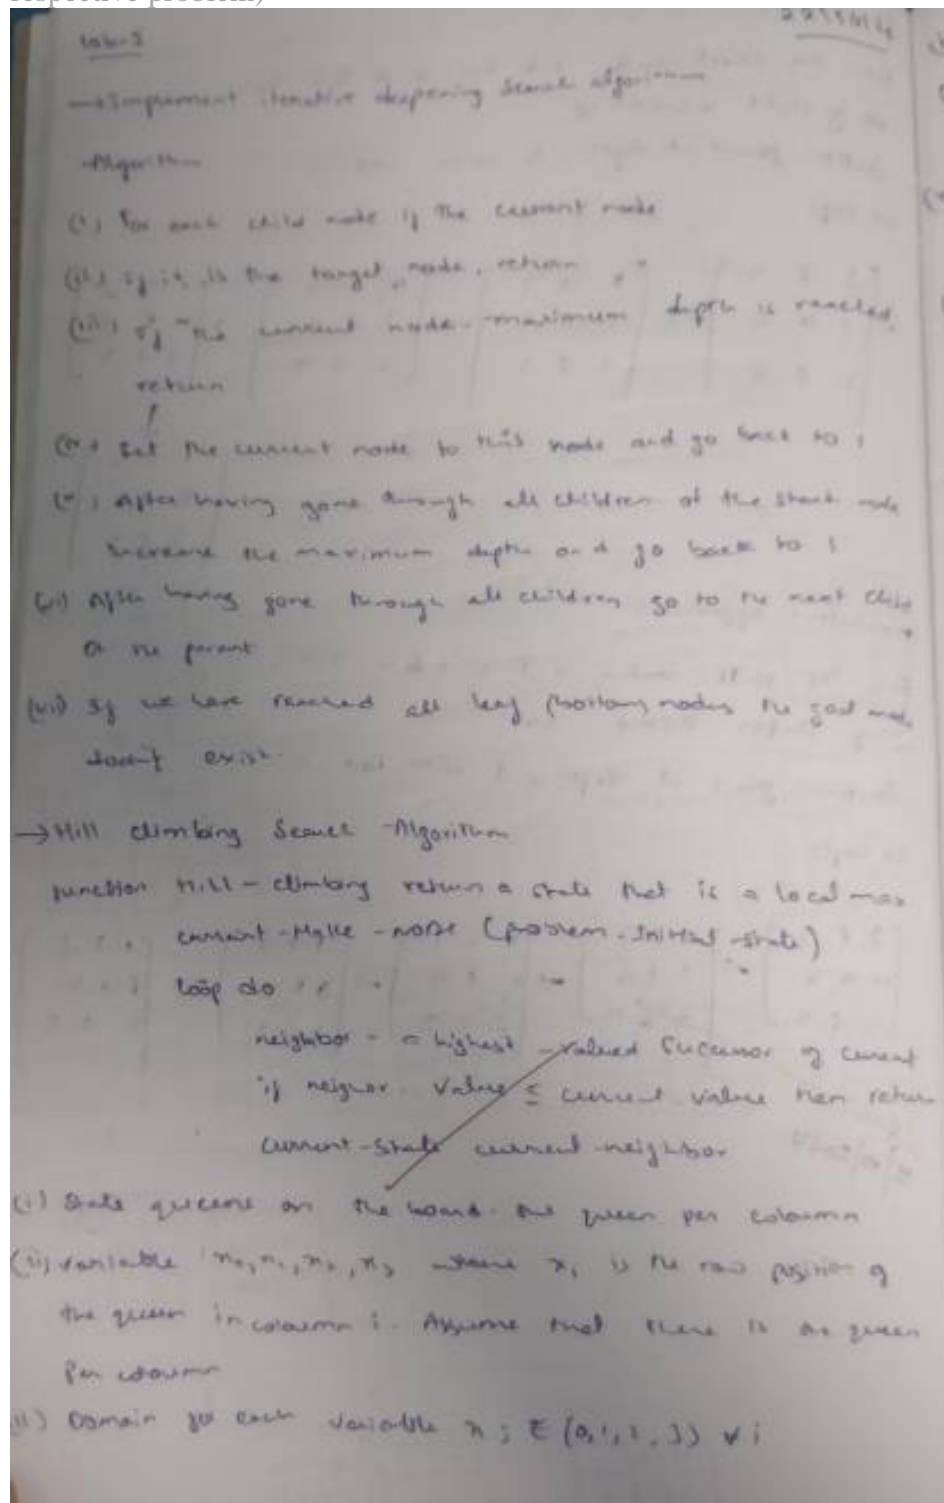 respective problem)
Lab-5
→ Implement iterative deepening search algorithm
Algorithm
(i) For each child node if the current node
(ii) If it is the target node, return
(iii) If the current node maximum depth is reached,
return
(iv) Set the current node to this node and go back to 1
(v) After having gone through all children of the start node
increase the maximum depth and go back to 1
(vi) After having gone through all children go to the next child
of the parent
(vii) If we have reached all leaf (bottom) nodes the goal node
doesn't exist.
→ Hill climbing Search Algorithm
function Hill-climbing return a state that is a local max
current-Make-node (problem-Initial-state)
loop do
neighbor - a highest-valued successor of current
if neighor. Value ≤ current value then return
current-state current-neighbor
(i) State queens on the board. one queen per coloumn
(ii) variable where x, is the row position of
the queen in coloumn i. Assume that there is one queen
per coloumn
Domain for each variable x; ∈ (0,1,2,3) ∀ i